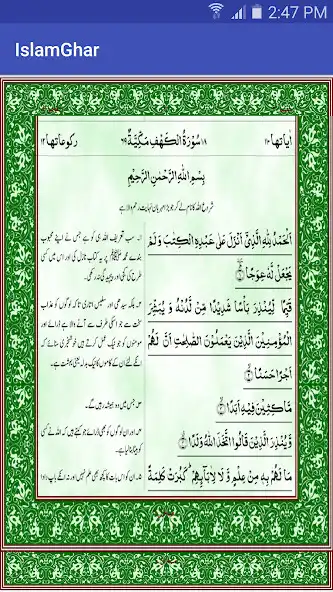 2:47 PM
IslamGhar
اٰیاتها ۱۱۰ ۱۸ سُوْرَةُ الْكَهْفِ مَكِّيَّةٌ ۶۹ ركوعاتها ۱۲
بِسْمِ اللهِ الرَّحْمٰنِ الرَّحِيْمِ
شروع اللہ کا نام لے کر جو بڑا مہربان نہایت رحم والا ہے
اَلْحَمْدُ لِلّٰهِ الَّذِيْٓ اَنْزَلَ عَلٰى عَبْدِهِ الْكِتٰبَ وَلَمْ
يَجْعَلْ لَّهٗ عِوَجًا ۱
قَيِّمًا لِّيُنْذِرَ بَاْسًا شَدِيْدًا مِّنْ لَّدُنْهُ وَ يُبَشِّرَ
الْمُؤْمِنِيْنَ الَّذِيْنَ يَعْمَلُوْنَ الصّٰلِحٰتِ اَنَّ لَهُمْ
اَجْرًا حَسَنًا ۲
مَّاكِثِيْنَ فِيْهِ اَبَدًا ۳
وَّ يُنْذِرَ الَّذِيْنَ قَالُوا اتَّخَذَ اللّٰهُ وَلَدًا ۴
مَا لَهُمْ بِهٖ مِنْ عِلْمٍ وَّ لَا لِاٰبَآئِهِمْ كَبُرَتْ كَلِمَةً
۱۔ سب تعریف اللہ ہی کو ہے جس نے اپنے محبوب
بندے محمد ﷺ پر یہ کتاب نازل کی اور اس میں کسی
طرح کی کجی اور پیچیدگی نہ رکھی۔
۲۔ بلکہ سیدھی اور سلیس اتاری تاکہ لوگوں کو عذاب
سخت سے جو اسکی طرف سے آنے والا ہے ڈرائے اور
مومنوں کو جو نیک عمل کرتے ہیں خوشخبری سنائے کہ
انکے لئے ان کے کاموں کا نیک بدلہ یعنی بہشت ہے۔
۳۔ جس میں وہ ہمیشہ رہیں گے۔
۴۔ اور ان لوگوں کو بھی ڈرائے جو کہتے ہیں کہ اللہ نے کسی
کو بیٹا بنا لیا ہے۔
۵۔ ان کو اس بات کا کچھ بھی علم نہیں اور نہ انکے باپ دادا